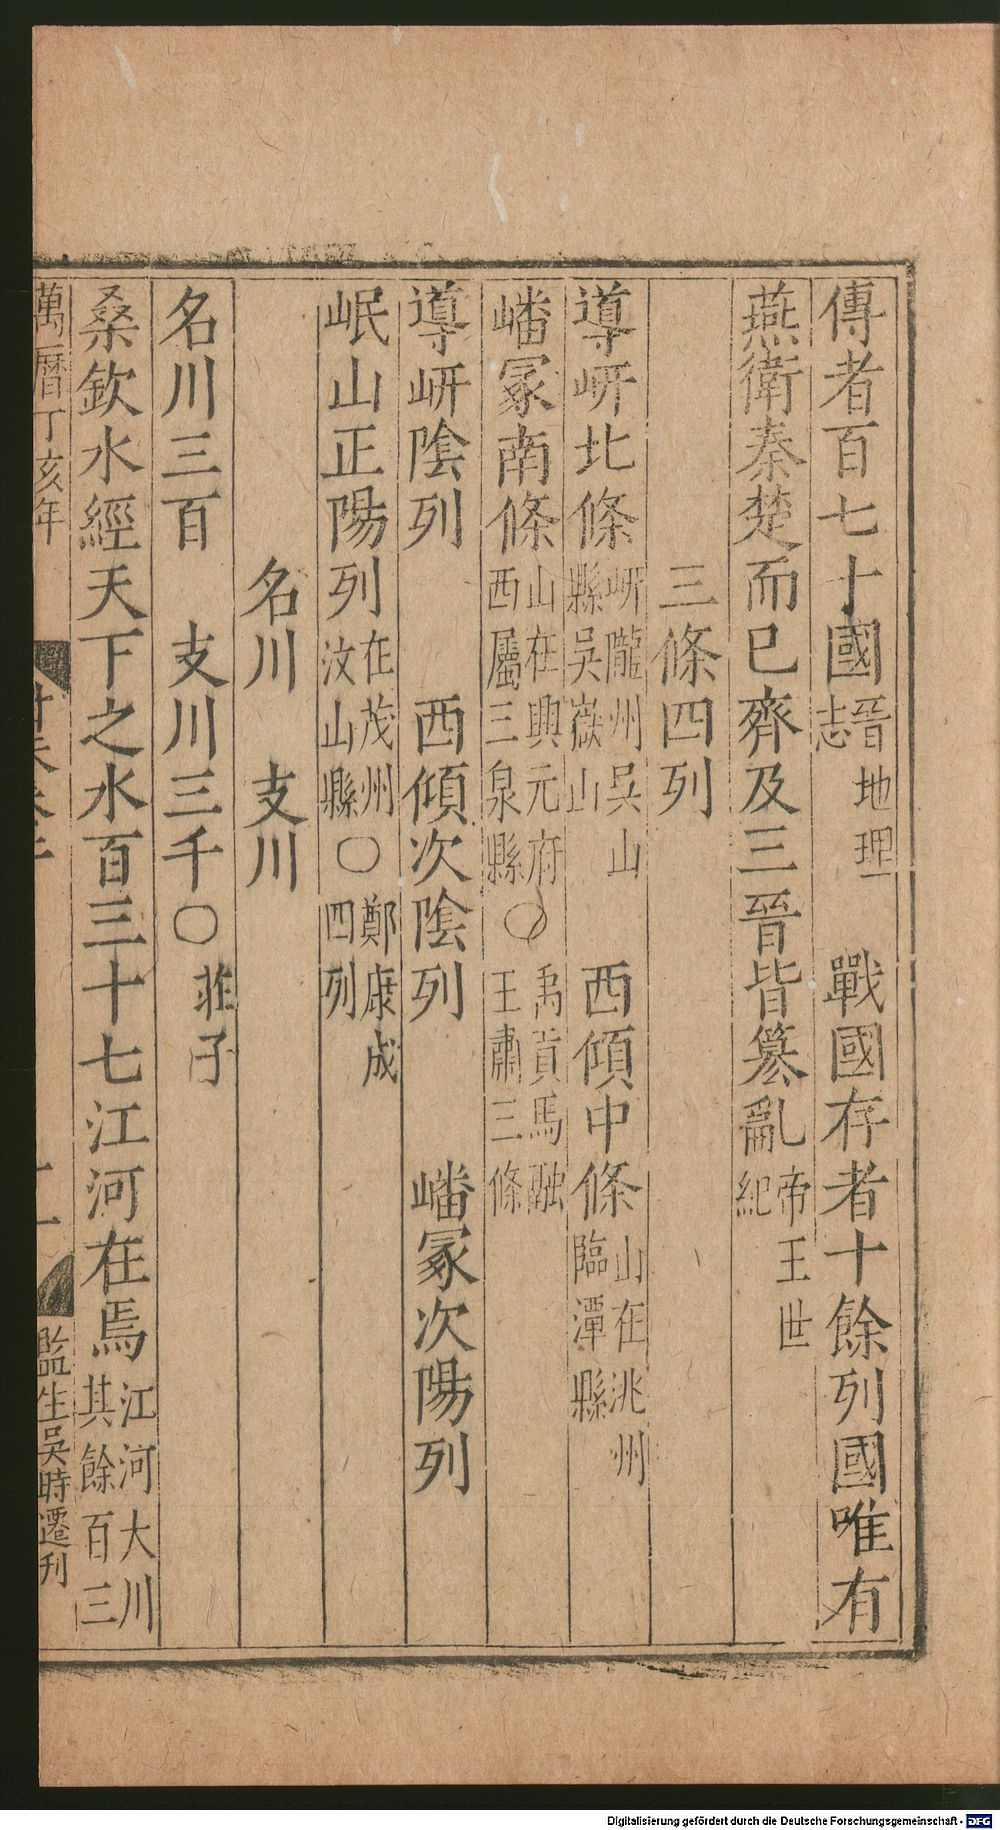 傳者百七十國晉地理志　戰國存者十餘列國唯有
燕衛秦楚而巳齊及三晉皆篡亂帝王世紀
三條四列
導岍北條岍隴州吳山縣吳嶽山　西傾中條山在洮州臨潭縣
嶓冢南條山在興元府西屬三泉縣〇禹貢馬融王肅三條
導岍陰列　西傾次陰列　嶓冢次陽列
岷山正陽列在茂州汶山縣〇鄭康成四列
名川　支川
名川三百　支川三千〇莊子
桑欽水經天下之水百三十七江河在焉江河大川其餘百三
萬曆丁亥年
監生吳時遷刋
Digitalisierung gefördert durch die Deutsche Forschungsgemeinschaft - DFG